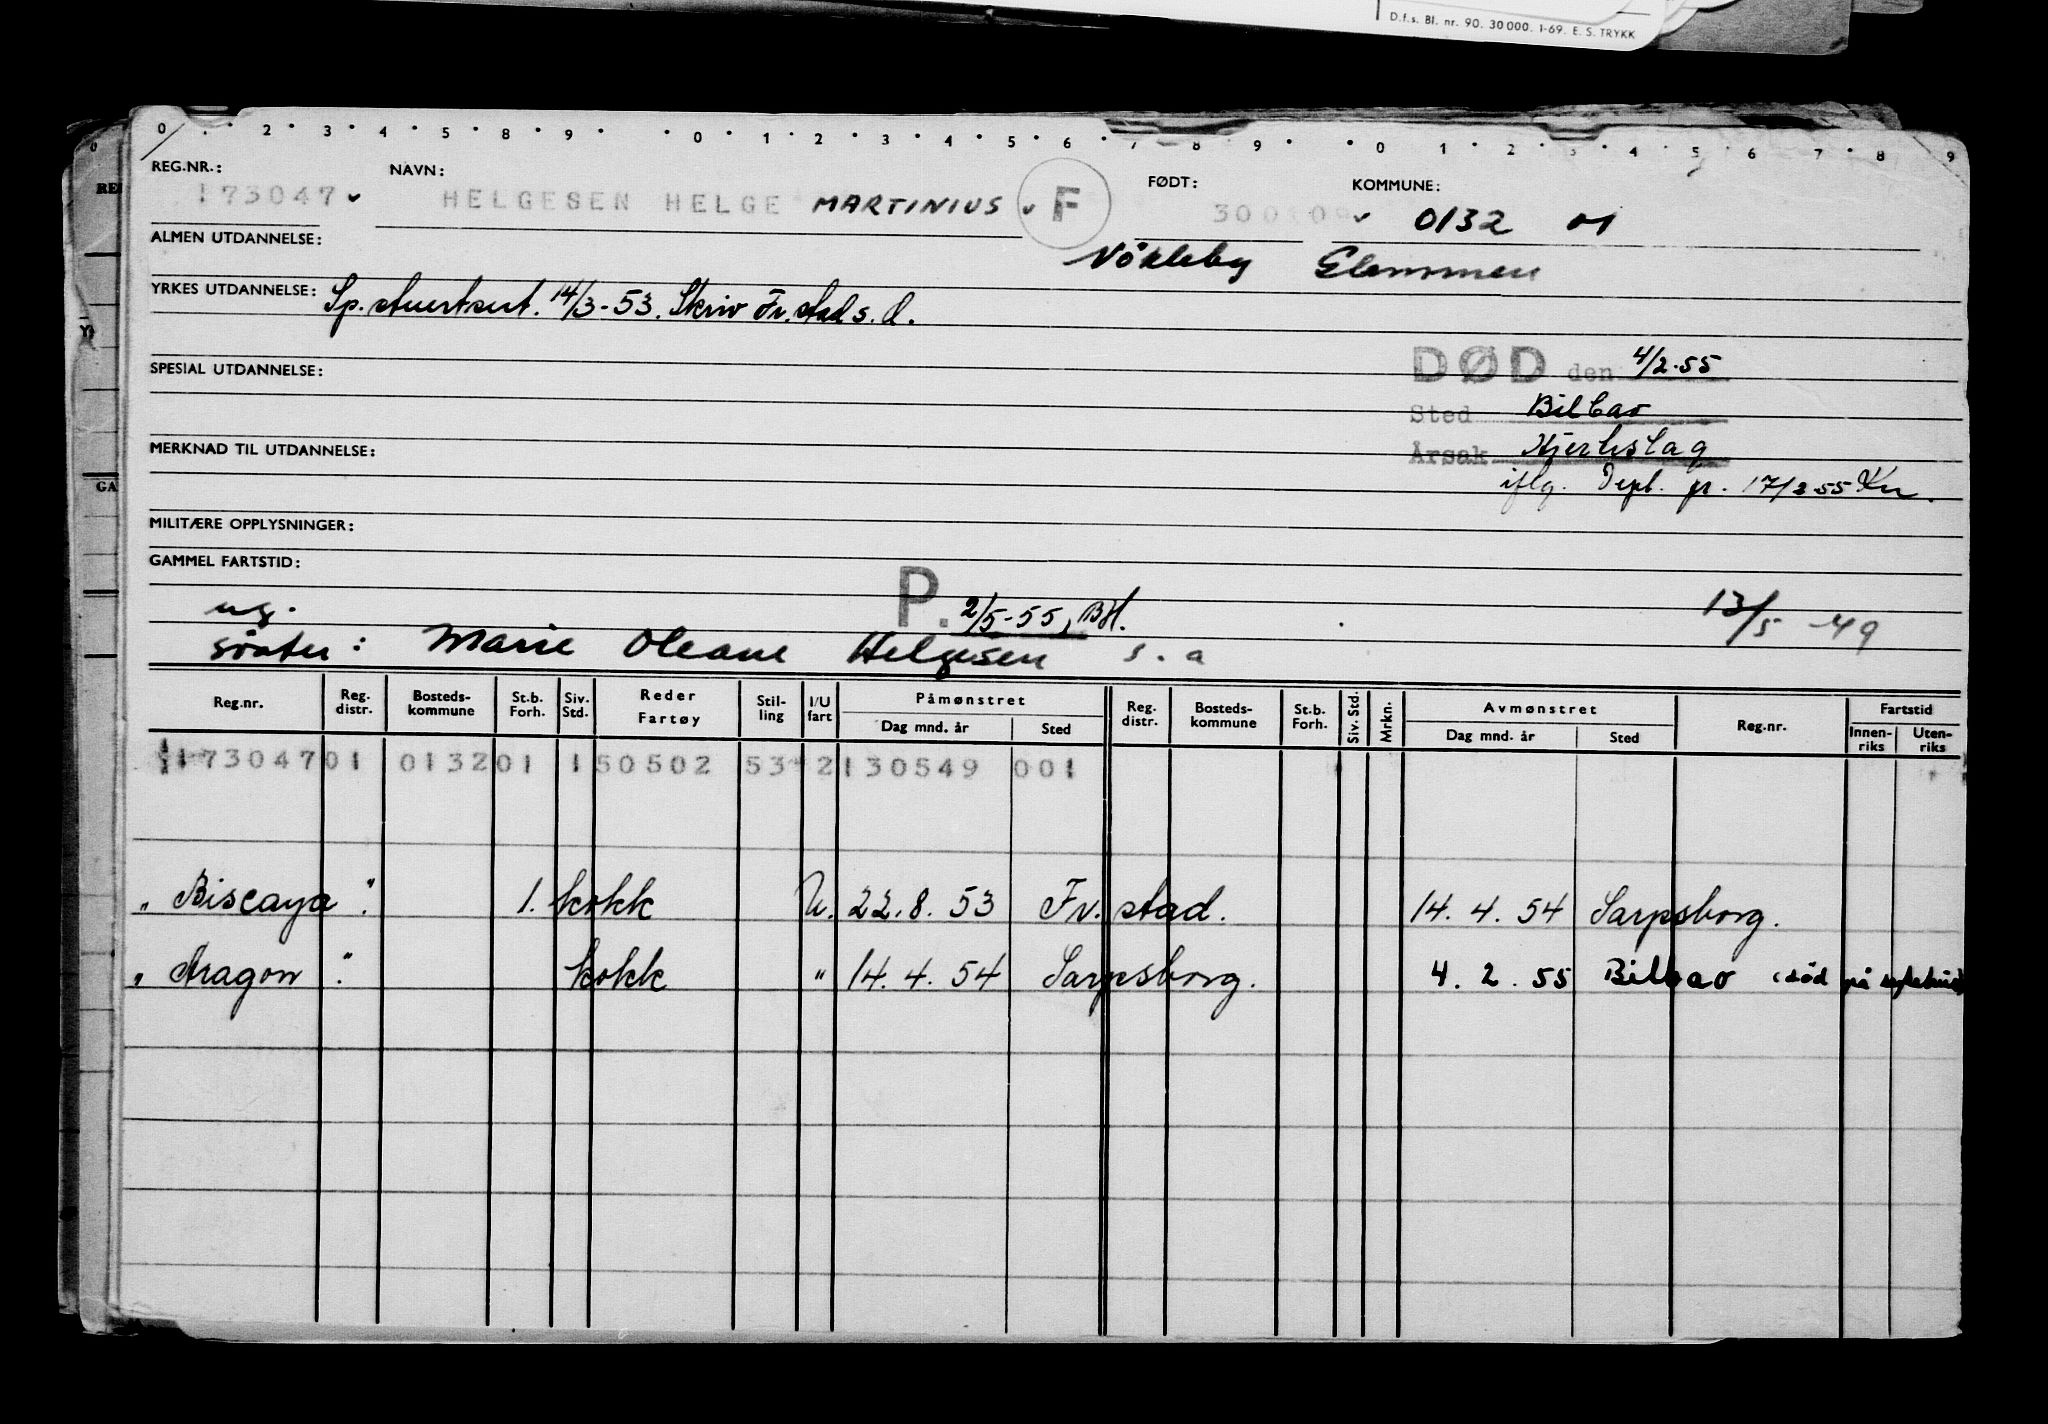 D.f.s. Bl. nr. 90. 30 000. 1-69. E. S. TRYKK
0 2 3 4 5 8 9 0 1 2 3 4 5 6 7 8 9 0 1 2 3 4 5 6 7 8 9
REG.NR.: NAVN: FØDT: KOMMUNE:
173047 HELGESEN HELGE MARTINIUS F 0132 01
ALMEN UTDANNELSE: Nökleby Glemmen
YRKES UTDANNELSE: Sp. stuertsert. 14/3-53. Skriv Fr.stad s.d.
SPESIAL UTDANNELSE: DØD den 4/2.55
Sted Bilbao
MERKNAD TIL UTDANNELSE: Årsak Hjerteslag
iflg. Dept. 17/2 55 Kn.
MILITÆRE OPPLYSNINGER:
GAMMEL FARTSTID:
ug. P. 2/5-55, BH. 13/5 -49
söster: Marie Oleane Helgesen s.a
Reg.nr. Reg. distr. Bosteds-kommune St.b. Forh. Siv. Std. Reder Fartøy Stil-ling I/U fart Påmønstret Dag mnd. år Sted Reg. distr. Bosteds-kommune St.b. Forh. Siv. Std. Mrkn. Avmønstret Dag mnd. år Sted Reg.nr. Fartstid Innen-riks Uten-riks
17304701 013201 150502 53 2 130549 001
„Biscaya". 1. kokk U. 22.8.53 Fr.stad. 14.4.54 Sarpsborg.
„Aragon". kokk " 14.4.54 Sarpsborg. 4.2.55 Bilbao (död på sykehus)